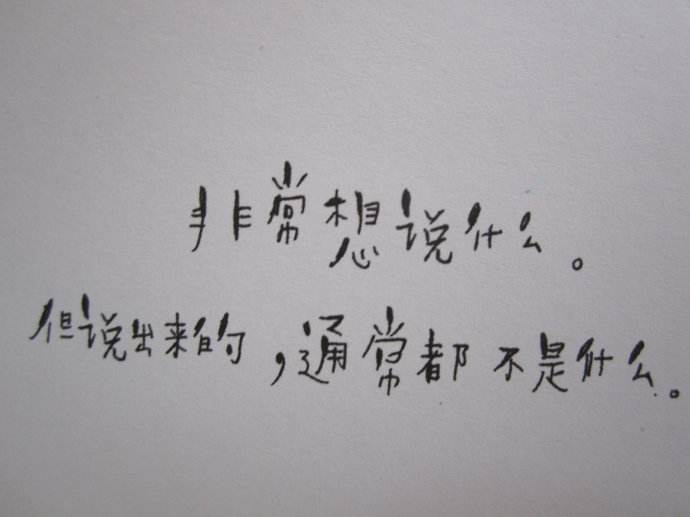 非常想说什么。
但说出来的,通常都不是什么。